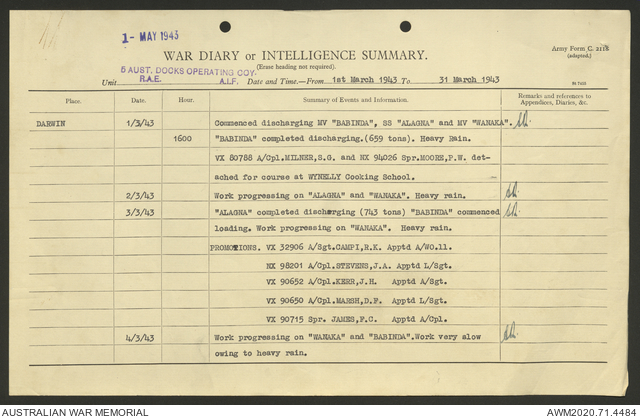 1- MAY 1943
Army Form C. 2118
(adapted.)
WAR DIARY or INTELLIGENCE SUMMARY.
(Erase heading not required).
IN THIS
Unit 5 AUST. DOCKS OPERATING COY. R.A.E. A.I.F. Date and Time.—From 1st March 1943 To 31 March 1943
Place. Date. Hour. Summary of Events and Information. Remarks and references to Appendices, Diaries, &c.
DARWIN 1/3/43 Commenced discharging MV "BABINDA", SS "ALAGNA" and MV "WANAKA".
1600 "BABINDA" completed discharging.(659 tons). Heavy Rain.
VX 80788 A/Cpl.MILNER,S.G. and NX 94026 Spr.MOORE,P.W. det-
ached for course at WYNELLY Cooking School.
2/3/43 Work progressing on "ALAGNA" and "WANAKA". Heavy rain.
3/3/43 "ALAGNA" completed discharging (743 tons) "BABINDA" commenced
loading. Work progressing on "WANAKA". Heavy rain.
PROMOTIONS. VX 32906 A/Sgt.CAMPI,R.K. Apptd A/Wo.11.
NX 98201 A/Cpl.STEVENS,J.A. Apptd L/Sgt.
VX 90652 A/Cpl.KERR,J.H. Apptd A/Sgt.
VX 90650 A/Cpl.MARSH,D.F. Apptd L/Sgt.
VX 90715 Spr. JAMES,F.C. Apptd A/Cpl.
4/3/43 Work progressing on "WANAKA" and "BABINDA".Work very slow
owing to heavy rain.
AUSTRALIAN WAR MEMORIAL AWM2020.71.4484